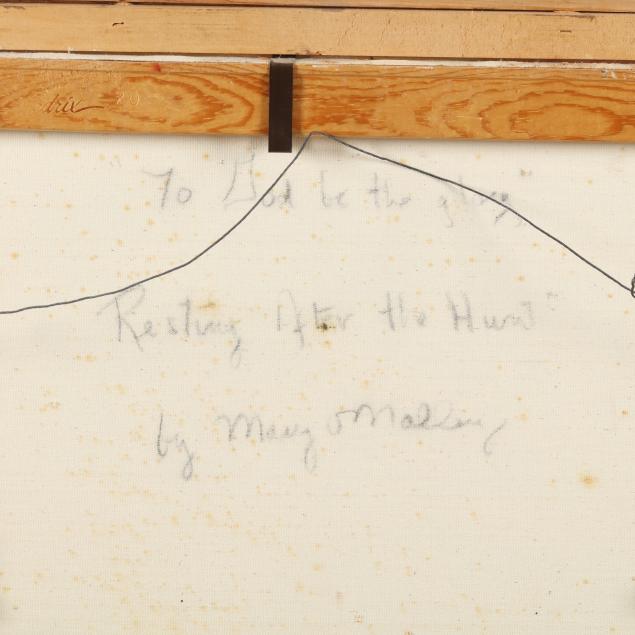 trix
"To God be the glory"
Resting After the Hunt"
by Mary O'Malley